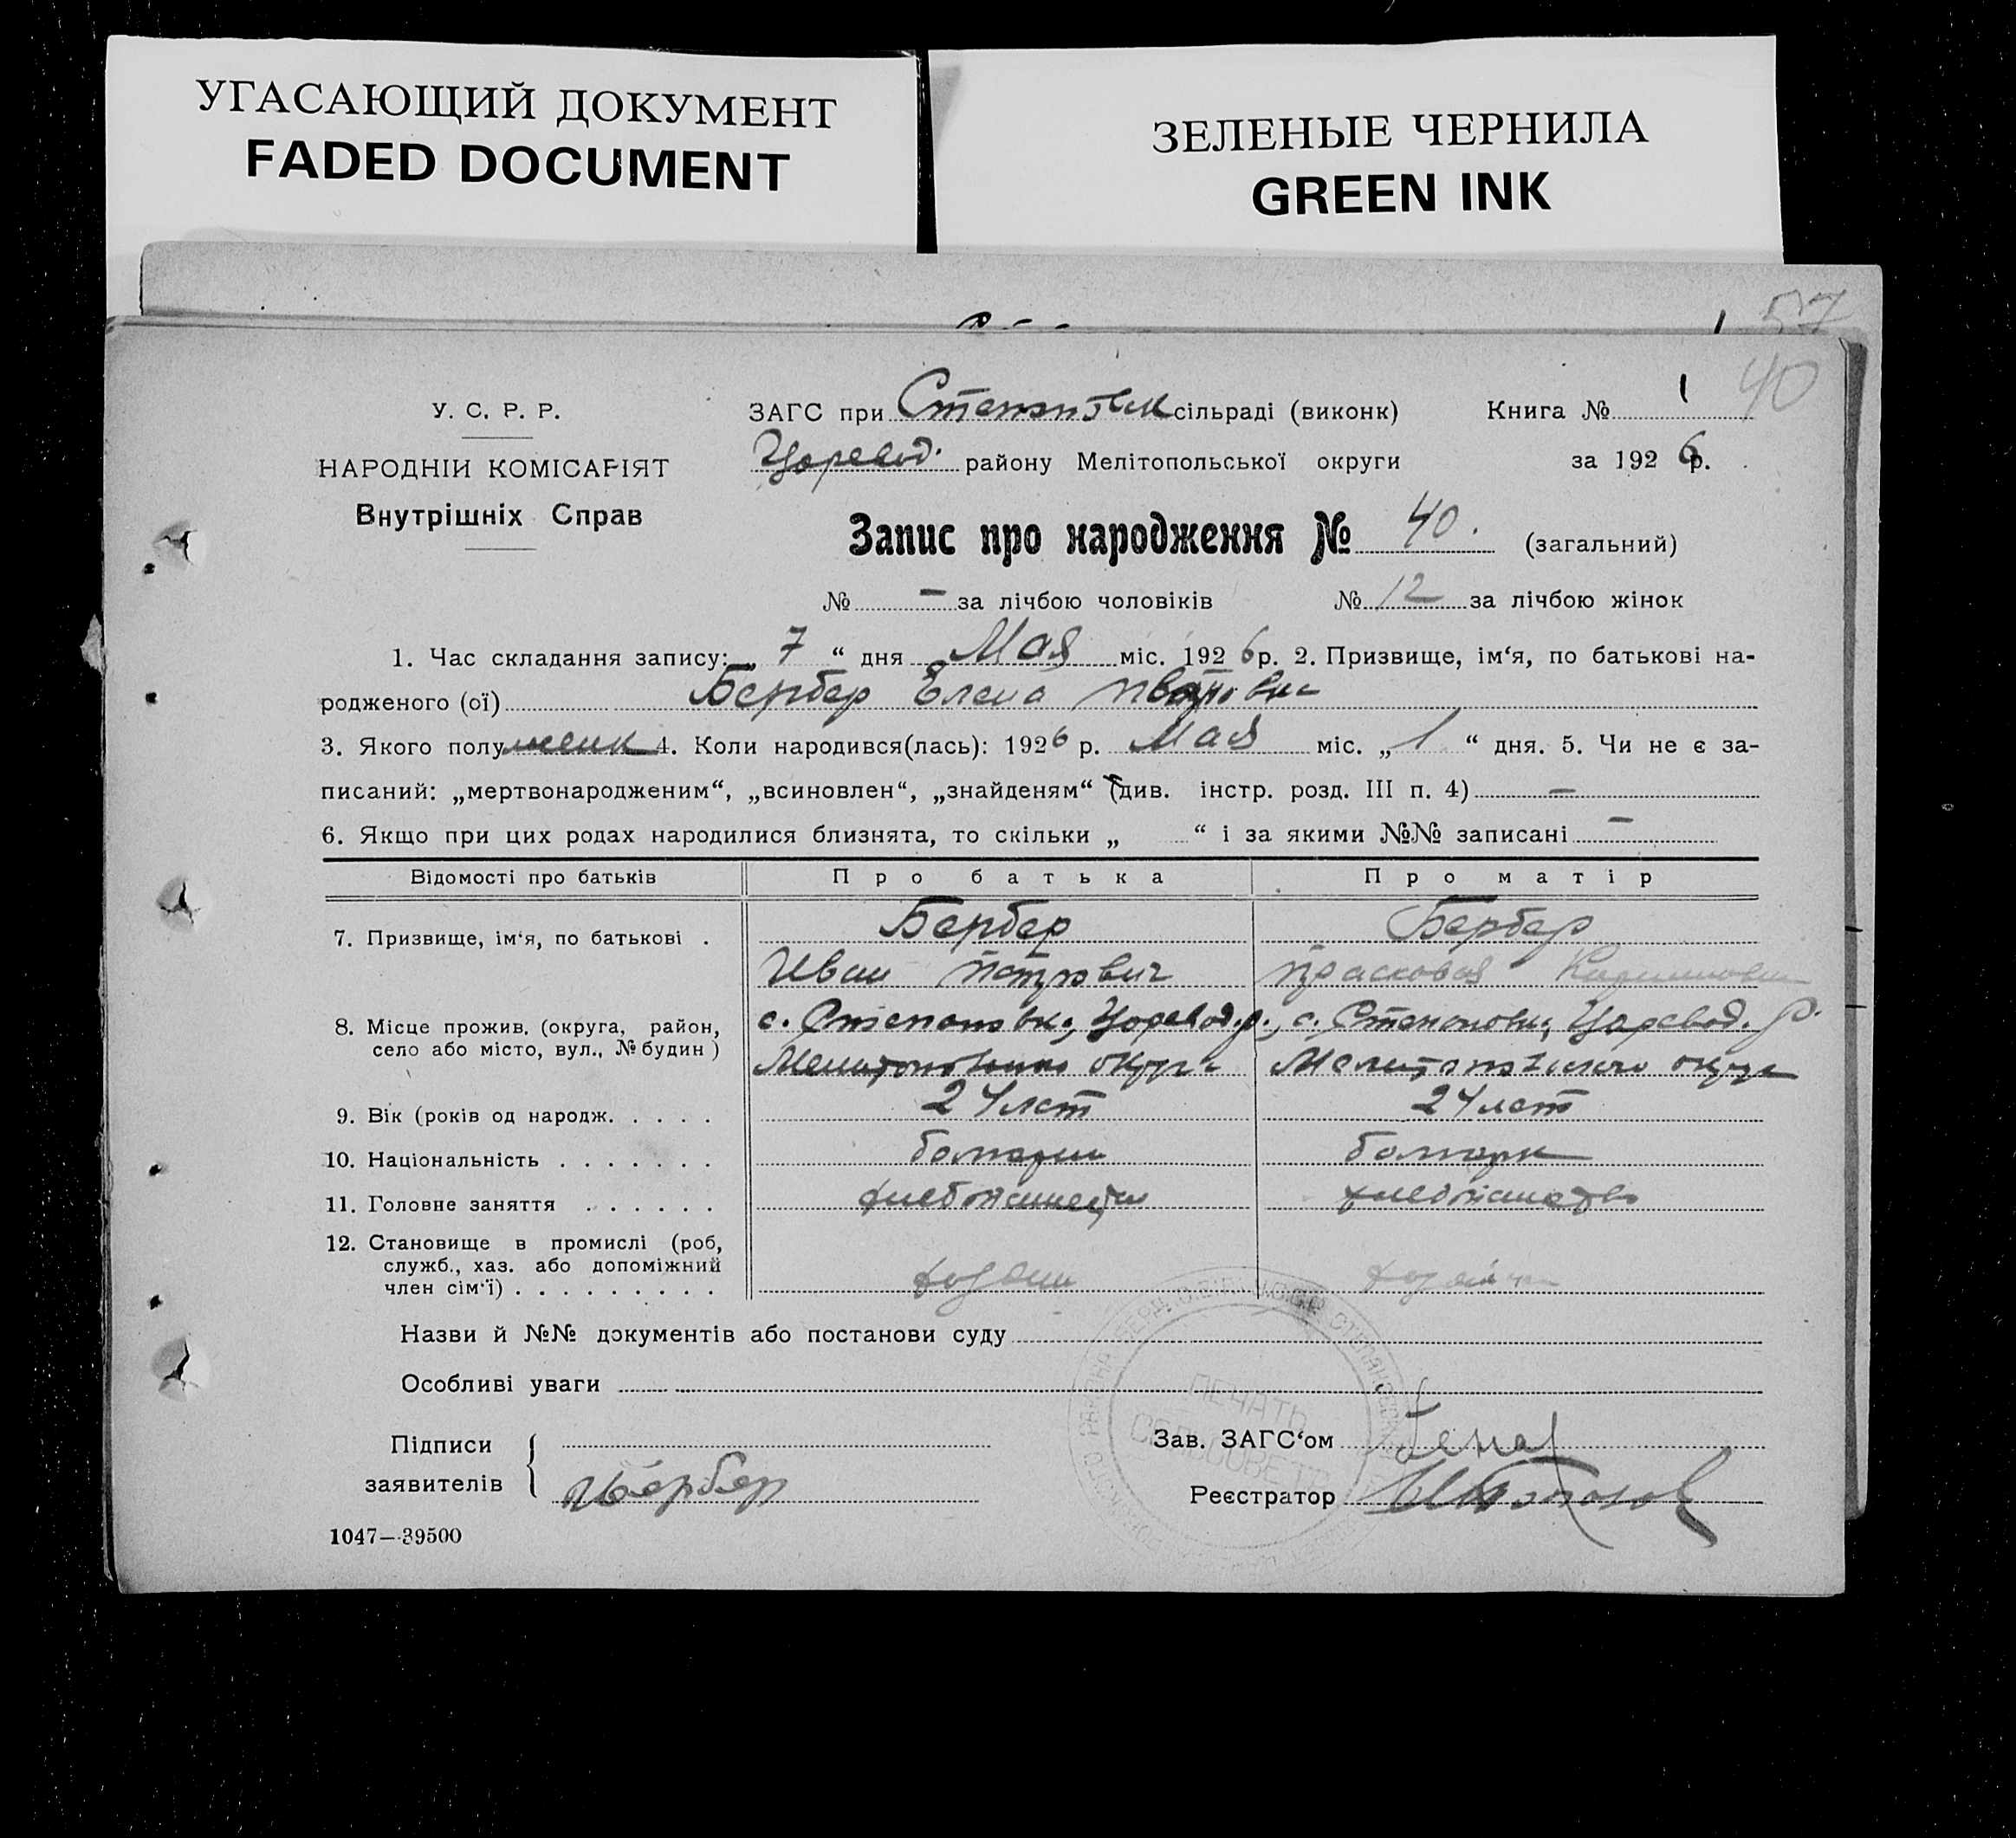 УГАСАЮЩИЙ ДОКУМЕНТ
FADED DOCUMENT
ЗЕЛЕНЫЕ ЧЕРНИЛА
GREEN INK
57
40
У. С. Р. Р.
НАРОДНІЙ КОМІСАРІЯТ
Внутрішніх Справ
ЗАГС при сільраді (виконк) Книга № 1
Царевод. району Мелітопольської округи за 1926 р.
Запис про народження № 40. (загальний)
№ — за лічбою чоловіків № 12 за лічбою жінок
1. Час складання запису: „ 7 “ дня Мая міс. 1926 р. 2. Призвище, ім‘я, по батькові на-
родженого (ої) Бербер Елена Ивановна
3. Якого полу женск 4. Коли народився(лась): 1926 р. Мая міс. „ 1 “ дня. 5. Чи не є за-
писаний: „мертвонародженим“, „всиновлен“, „знайденям“ (див. інстр. розд. III п. 4) —
6. Якщо при цих родах народилися близнята, то скільки „ “ і за якими №№ записані —
Відомості про батьків Про батька Про матір
7. Призвище, ім‘я, по батькові . Бербер Бербер
Иван Петрович Прасковья
8. Місце прожив. (округа, район, с. Степановка, Царевод. р., с. Степановки, Царевод. р.
село або місто, вул., № будин ) Мелитопольского округа Мелитопольского округа
9. Вік (років од народж. . . . . 24 лет 24 лет
10. Національність . . . . . . . болгарин болгарк
11. Головне заняття . . . . . . хлебопашество хлебопашество
12. Становище в промислі (роб,
служб., хаз. або допоміжний
член сім‘ї) . . . . . . . . . хозяин
Назви й №№ документів або постанови суду
Особливі уваги
ПЕЧАТЬ
СЕЛЬСОВЕТА
Підписи
заявителів Бербер
Зав. ЗАГС‘ом
Реєстратор
1047—39500